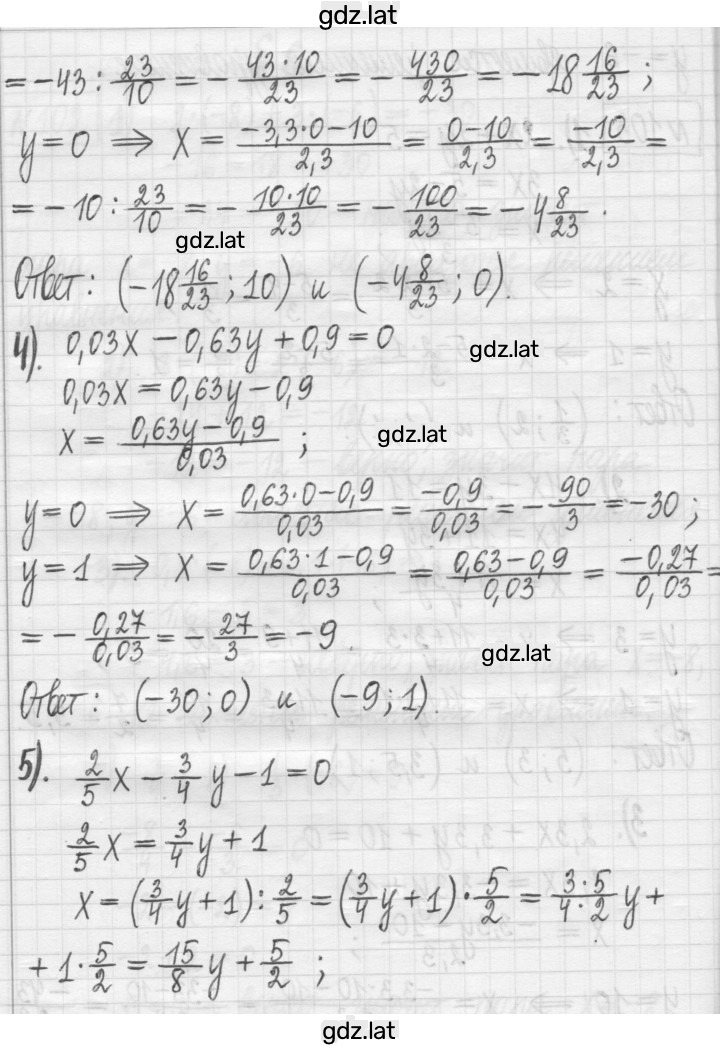 gdz.lat
= -43 : 23/10 = - 43·10/23 = - 430/23 = -18 16/23 ;
y = 0 ⇒ x = (-3,3·0-10)/2,3 = (0-10)/2,3 = -10/2,3 =
= -10 : 23/10 = - 10·10/23 = - 100/23 = -4 8/23 .
gdz.lat
Ответ: (-18 16/23 ; 10) и (-4 8/23 ; 0).
4). 0,03x - 0,63y + 0,9 = 0
gdz.lat
0,03x = 0,63y - 0,9
x = (0,63y - 0,9)/0,03 ;
gdz.lat
y = 0 ⇒ x = (0,63·0-0,9)/0,03 = -0,9/0,03 = - 90/3 = -30 ;
y = 1 ⇒ x = (0,63·1-0,9)/0,03 = (0,63-0,9)/0,03 = -0,27/0,03 =
= - 0,27/0,03 = - 27/3 = -9.
gdz.lat
Ответ: (-30 ; 0) и (-9 ; 1).
5). 2/5 x - 3/4 y - 1 = 0
2/5 x = 3/4 y + 1
x = (3/4 y + 1) : 2/5 = (3/4 y + 1) · 5/2 = 3·5/4·2 y +
+ 1 · 5/2 = 15/8 y + 5/2 ;
gdz.lat